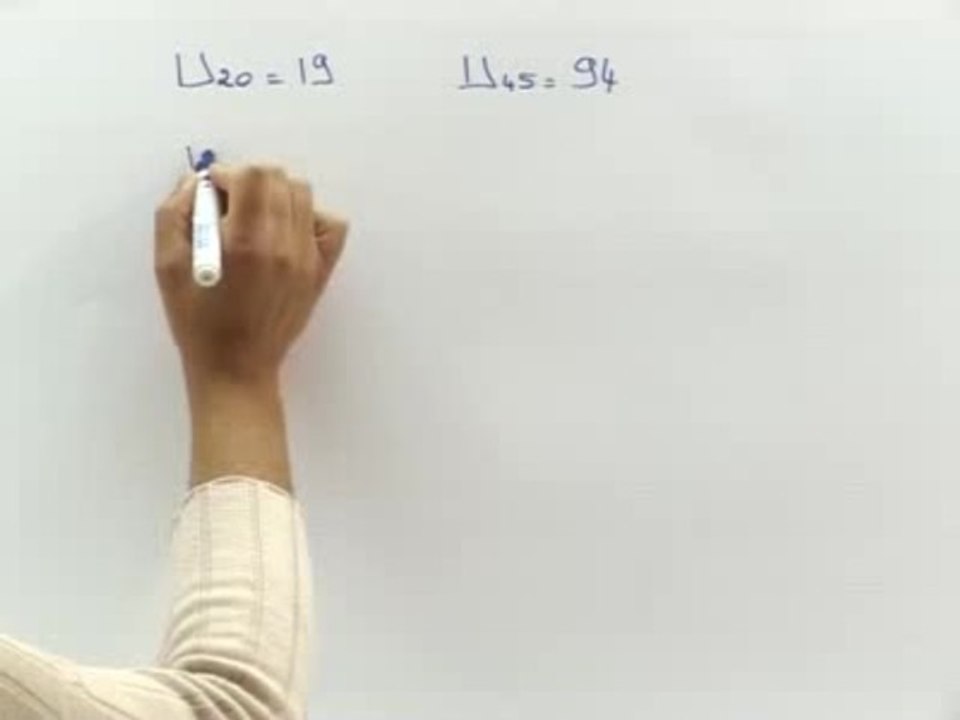 U₂₀ = 19 U₄₅ = 94